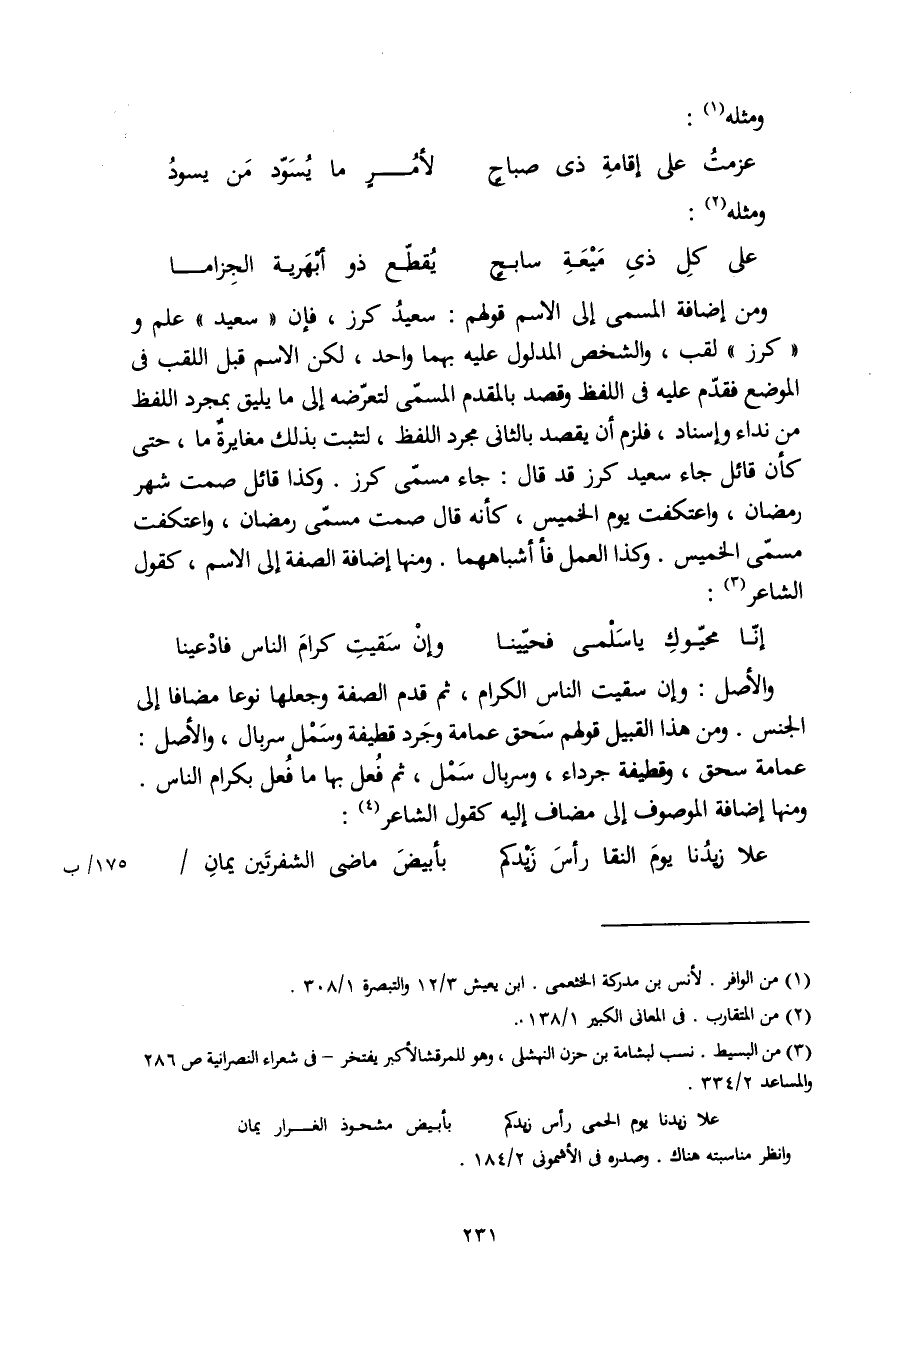 ومثله(١) :
عزمتُ على إقامةِ ذى صباحٍ لأمُـــرٍ ما يُسَوّد مَن يسودُ
ومثله(٢) :
على كلِ ذىِ مَيْعَةِ سابحٍ يُقطّع ذو أبْهَرية الحِزاما
ومن إضافة المسمى إلى الاسم قولهم : سعيدُ كرز ، فإن « سعيد » علم و
« كرز » لقب ، والشخص المدلول عليه بهما واحد ، لكن الاسم قبل اللقب فى
الموضع فقدّم عليه فى اللفظ وقصد بالمقدم المسمّى لتعرّضه إلى ما يليق بمجرد اللفظ
من نداء وإسناد ، فلزم أن يقصد بالثانى مجرد اللفظ ، لتثبت بذلك مغايرةٌ ما ، حتى
كأن قائل جاء سعيد كرز قد قال : جاء مسمّى كرز . وكذا قائل صمت شهر
رمضان ، واعتكفت يوم الخميس ، كأنه قال صمت مسمّى رمضان ، واعتكفت
مسمّى الخميس . وكذا العمل فأ أشباههما . ومنها إضافة الصفة إلى الاسم ، كقول
الشاعر(٣) :
إنّا محيّوكِ ياسَلْمى فحيّينا وإنْ سَقيتِ كرامَ الناس فادْعينا
والأصل : وإن سقيت الناس الكرام ، ثم قدم الصفة وجعلها نوعا مضافا إلى
الجنس . ومن هذا القبيل قولهم سَحق عمامة وجَرد قطيفة وسَمْل سربال ، والأصل :
عمامة سحق ، وقطيفة جرداء ، وسربال سَمْل ، ثم فُعل بها ما فُعل بكرام الناس .
ومنها إضافة الموصوف إلى مضاف إليه كقول الشاعر(٤) :
علا زيدُنا يومَ النقا رأسَ زَيْدكم بأبيضَ ماضى الشفرتَين يمانِ / ١٧٥/ ب
(١) من الوافر . لأنس بن مدركة الخثعمى . ابن يعيش ١٢/٣ والتبصرة ٣٠٨/١ .
(٢) من المتقارب . فى المعانى الكبير ١٣٨/١ ..
(٣) من البسيط . نسب لبشامة بن حزن النهشلى ، وهو للمرقشالأكبر يفتخر – فى شعراء النصرانية ص ٢٨٦
والمساعد ٣٣٤/٢ .
علا زيدنا يوم الحمى رأس زيدكم بأبيض مشحوذ الغـــرار يمان
وانظر مناسبته هناك . وصدره فى الأشمونى ١٨٤/٢ .
٢٣١